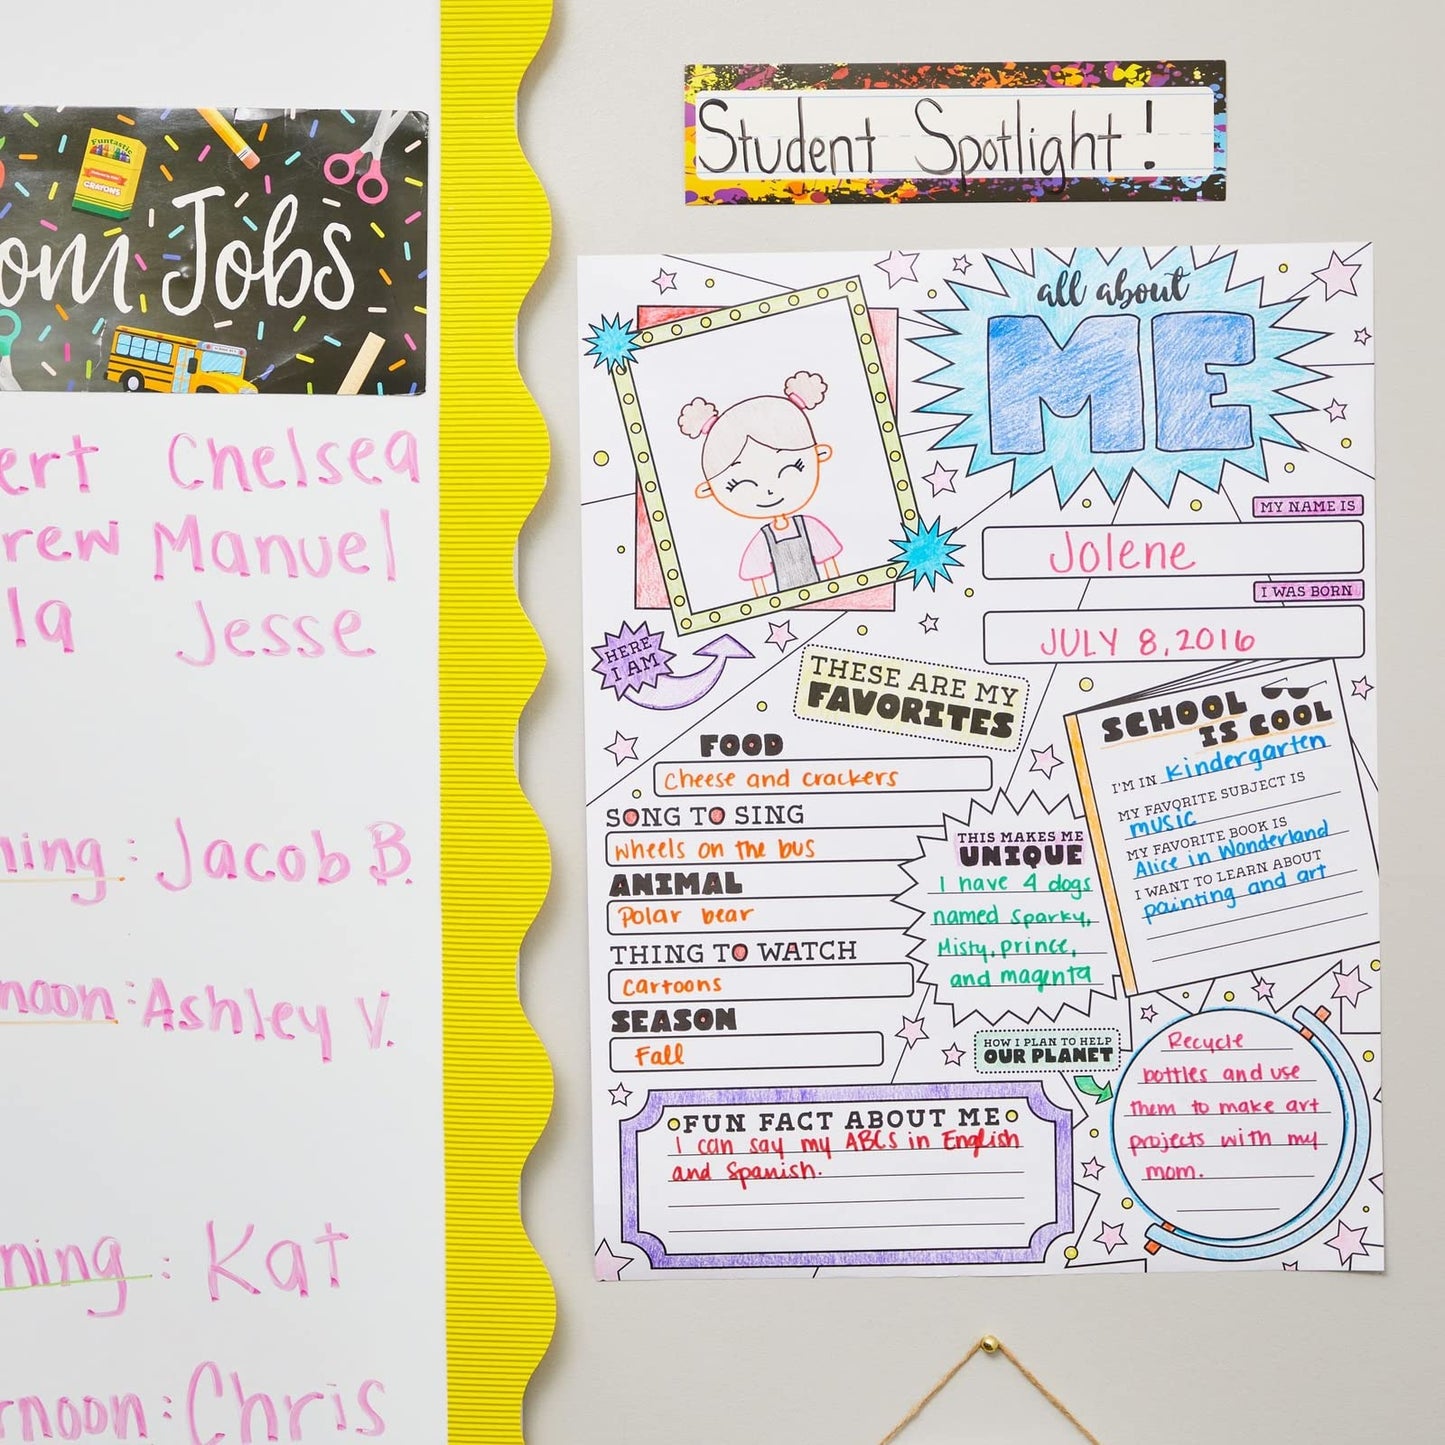 Funtastic
CRAYONS
Jobs
Chelsea
Manuel
Jesse
: Jacob B.
: Ashley V.
: Kat
: Chris
Student Spotlight!
all about
ME
MY NAME IS
Jolene
I WAS BORN
JULY 8, 2016
HERE
I AM
THESE ARE MY
FAVORITES
FOOD
Cheese and crackers
SONG TO SING
wheels on the bus
ANIMAL
Polar bear
THING TO WATCH
Cartoons
SEASON
Fall
THIS MAKES ME
UNIQUE
I have 4 dogs
named Sparky,
Misty, prince,
and magenta
SCHOOL
IS COOL
I'M IN kindergarten
MY FAVORITE SUBJECT IS
music
MY FAVORITE BOOK IS
Alice in Wonderland
I WANT TO LEARN ABOUT
painting and art
HOW I PLAN TO HELP
OUR PLANET
Recycle
bottles and use
them to make art
projects with my
mom.
FUN FACT ABOUT ME
I can say my ABCS in English
and Spanish.